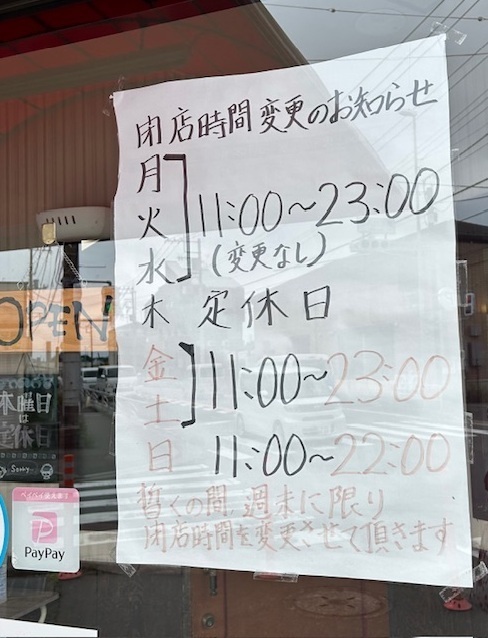 閉店時間変更のお知らせ
月
火 11:00～23:00
水 (変更なし)
木 定休日
金
土 11:00～23:00
日 11:00～22:00
暫くの間 週末に限り
閉店時間を変更させて頂きます
OPEN
木曜日
は
定休日
Sorry
PayPay